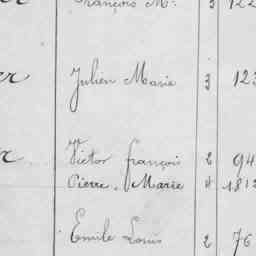 François M.
Julien Marie 3 123
Victor françois 2 94
Pierre Marie 4 1812
Emile Louis 2 76